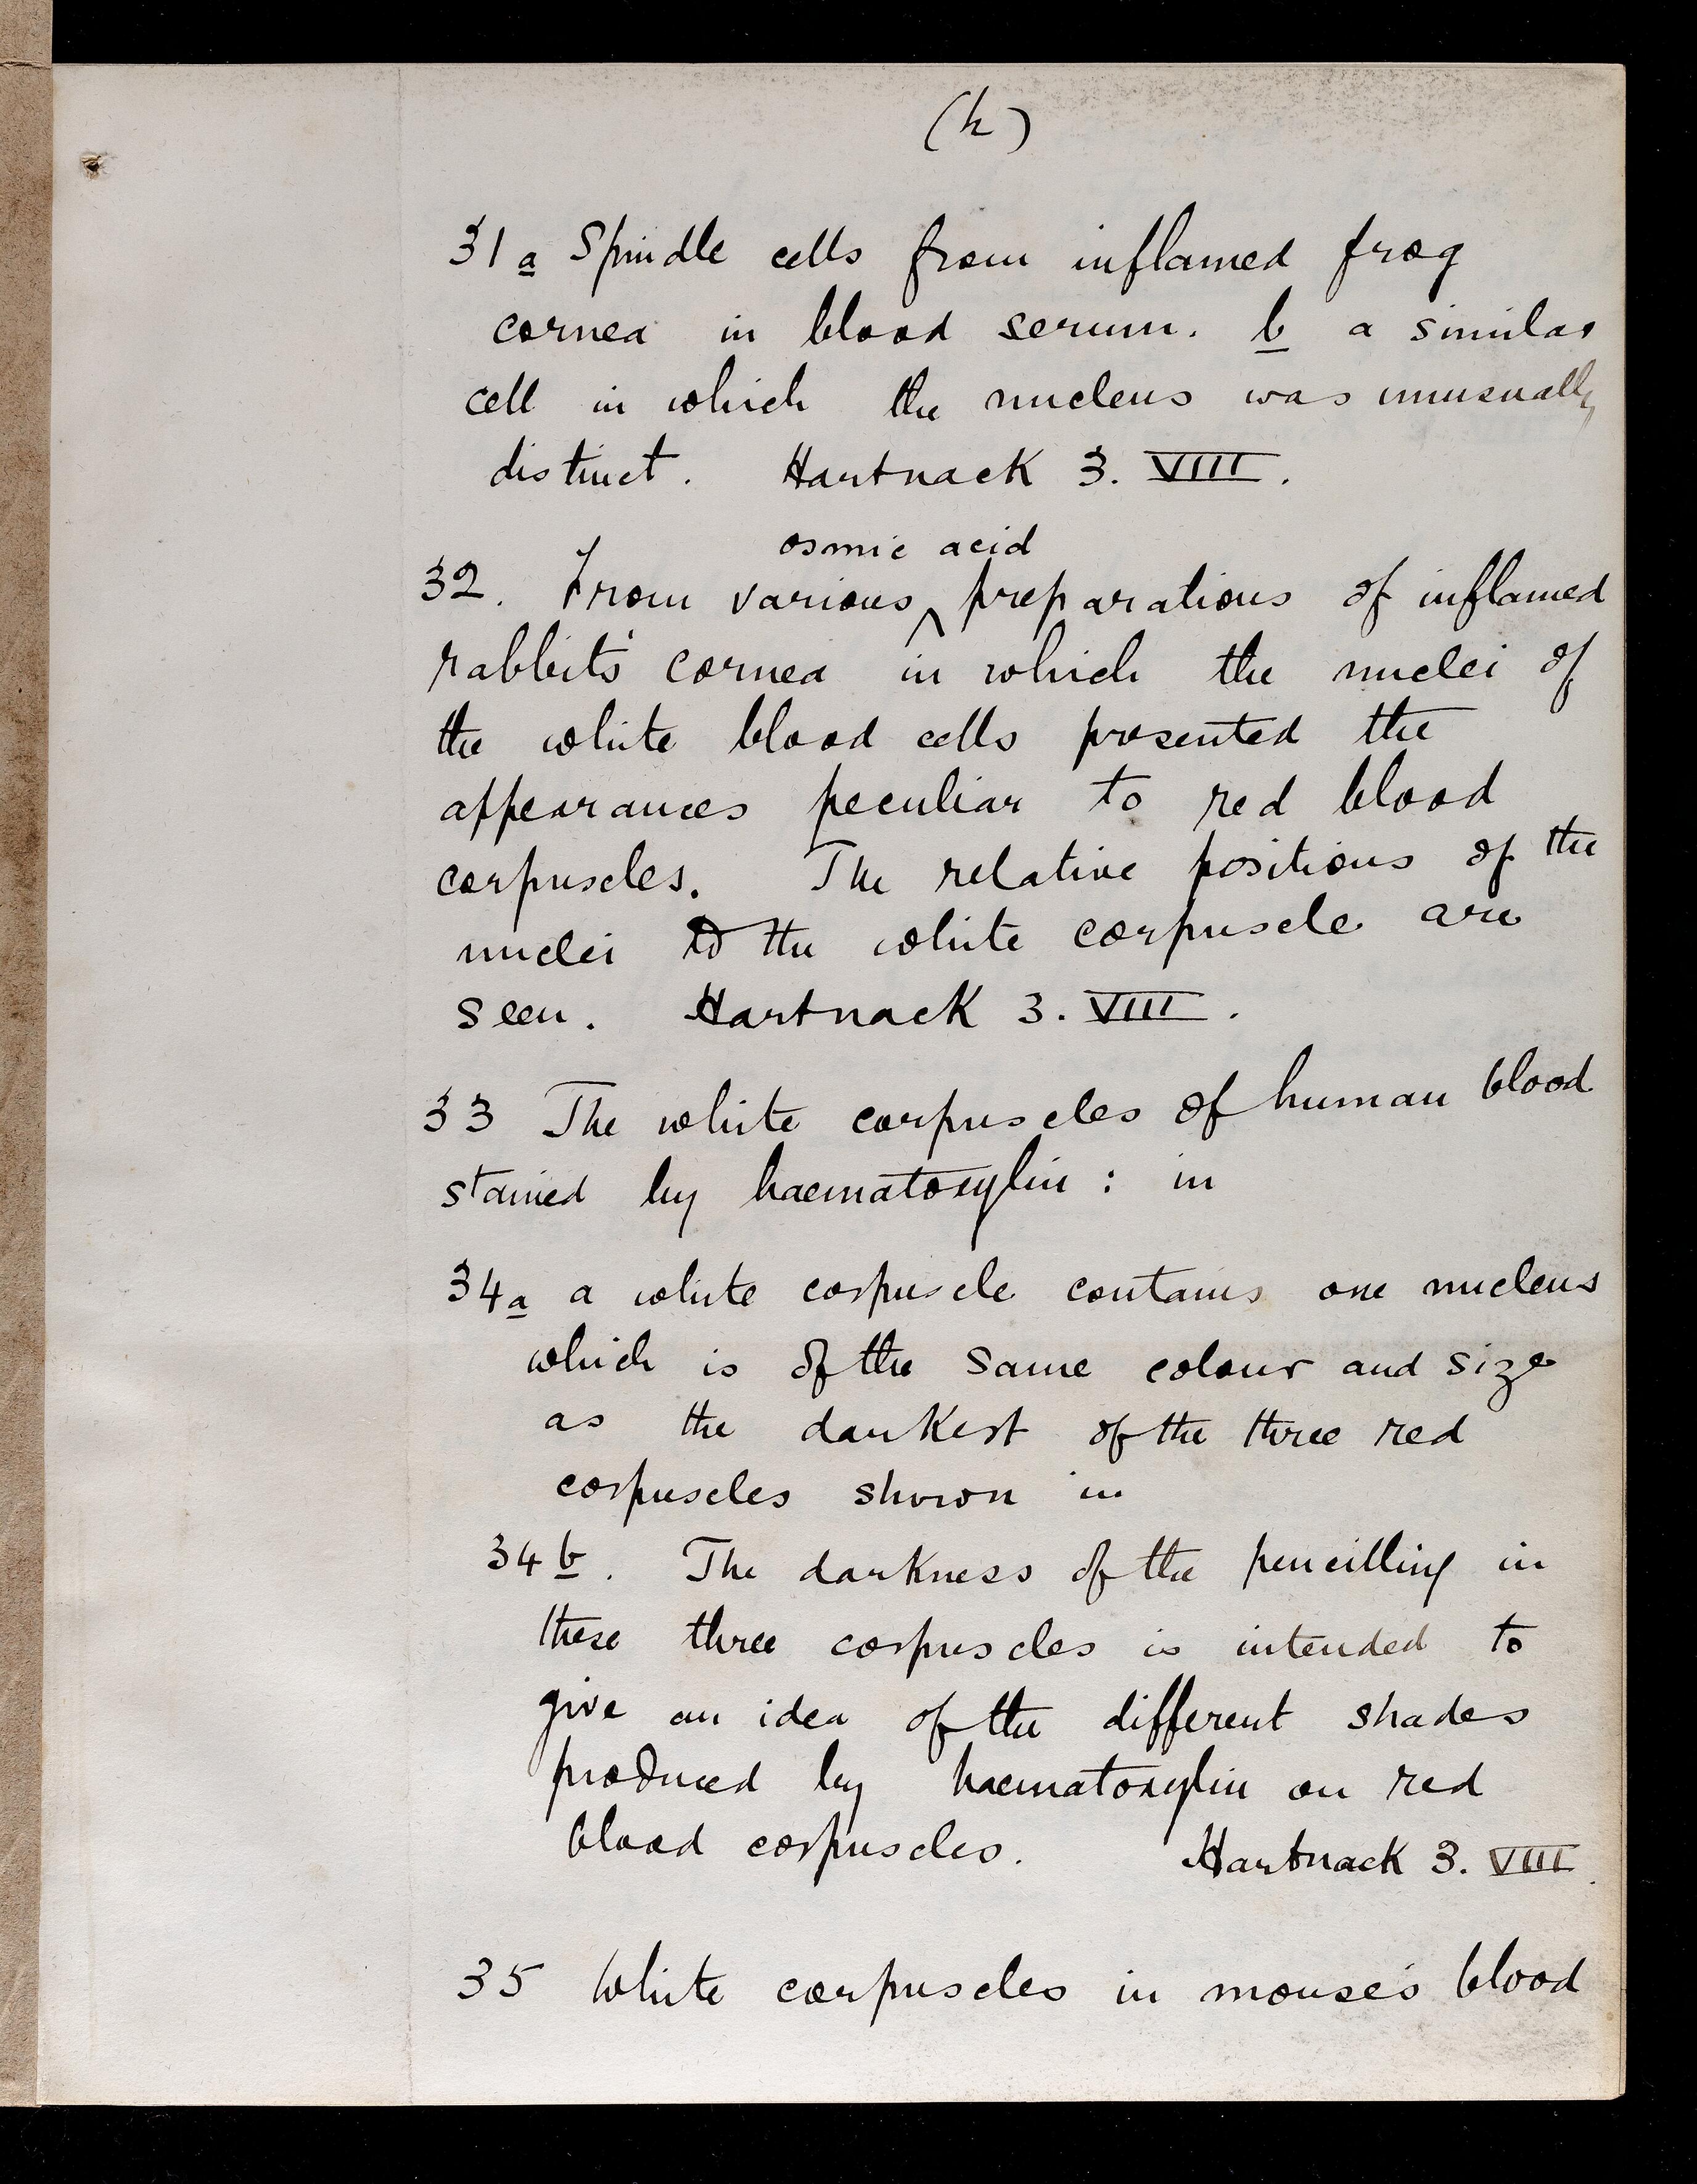 (h)
31a Spindle cells from inflamed frog
cornea in blood serum. b a similar
cell in which the nucleus was unusually
distinct. Hartnack 3. VIII.
osmic acid
32. From various ‸ preparations of inflamed
rabbit's cornea in which the nuclei of
the white blood cells presented the
appearances peculiar to red blood
corpuscles. The relative positions of the
nuclei to the white corpuscle are
seen. Hartnack 3. VIII.
33 The white corpuscles of human blood
stained by haematoxylin: in
34a a white corpuscle contains one nucleus
which is of the same colour and size
as the darkest of the three red
corpuscles shown in
34b. The darkness of the pencilling in
these three corpuscles is intended to
give an idea of the different shades
produced by haematoxylin on red
blood corpuscles. Hartnack 3. VIII.
35 White corpuscles in mouse's blood